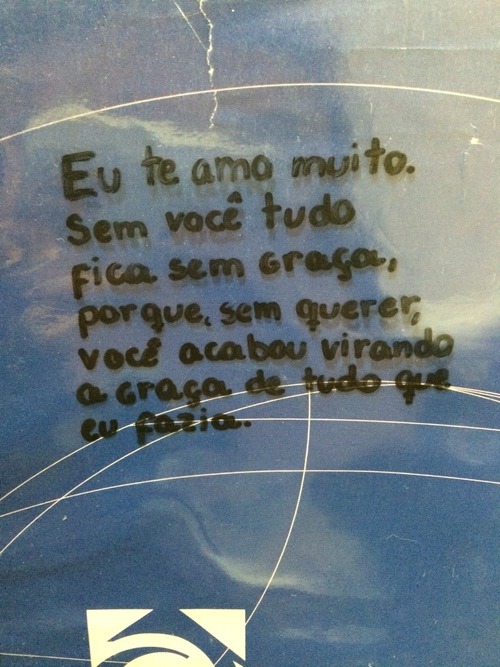 Eu te amo muito.
Sem você tudo
fica sem graça,
porque, sem querer,
você acabou virando
a graça de tudo que
eu fazia.